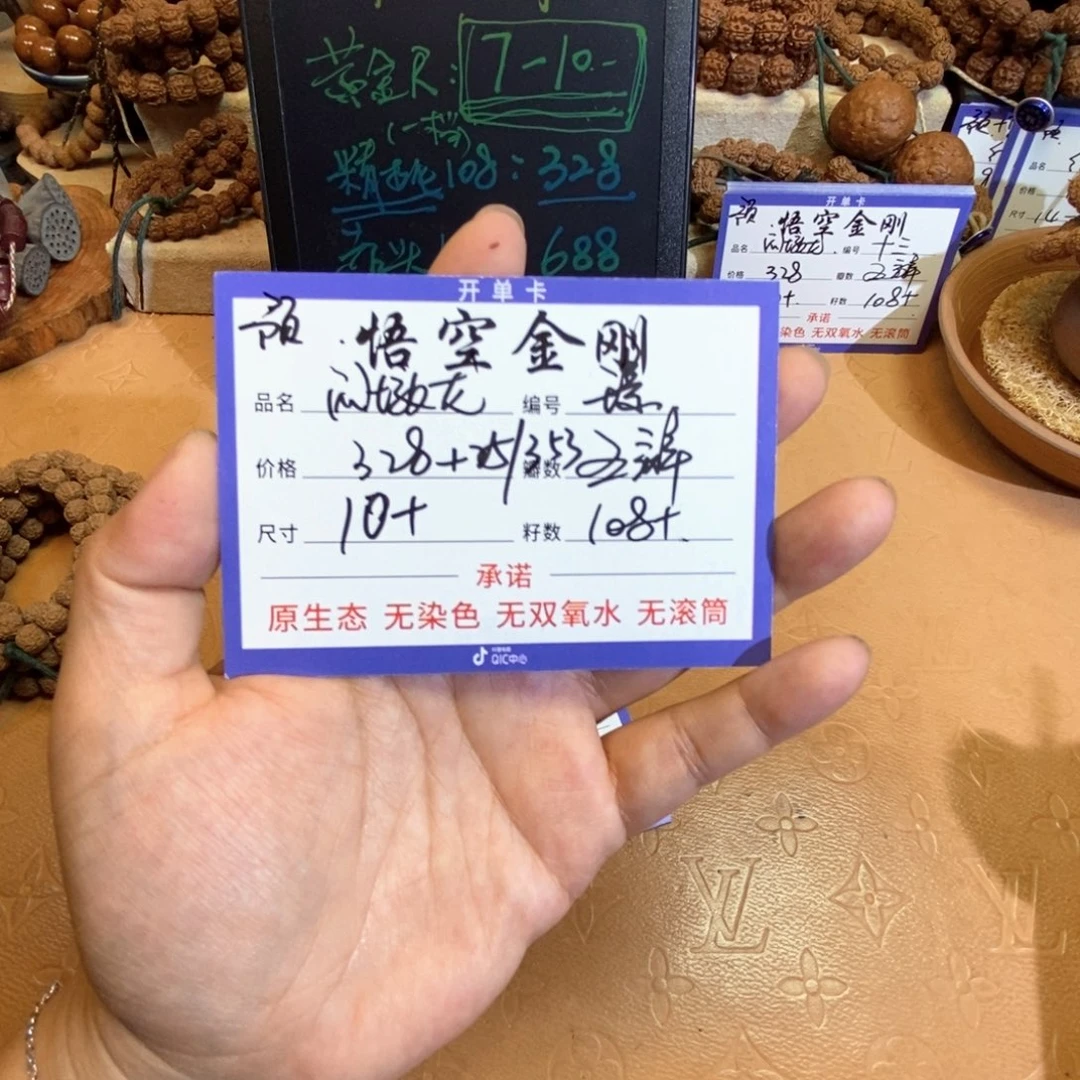 黄金尺：7-10.-
精挑108：328
688
开单卡
预 悟空金刚
品名 编号
价格 328+ /353 瓣数 五瓣
尺寸 10+ 籽数 108+
承诺
原生态 无染色 无双氧水 无滚筒
QIC中心
开单卡
预 悟空金刚
品名 编号 十三
价格 328 瓣数 五瓣
籽数 108+
承诺
染色 无双氧水 无滚筒
品名
价格
尺寸 14
LV